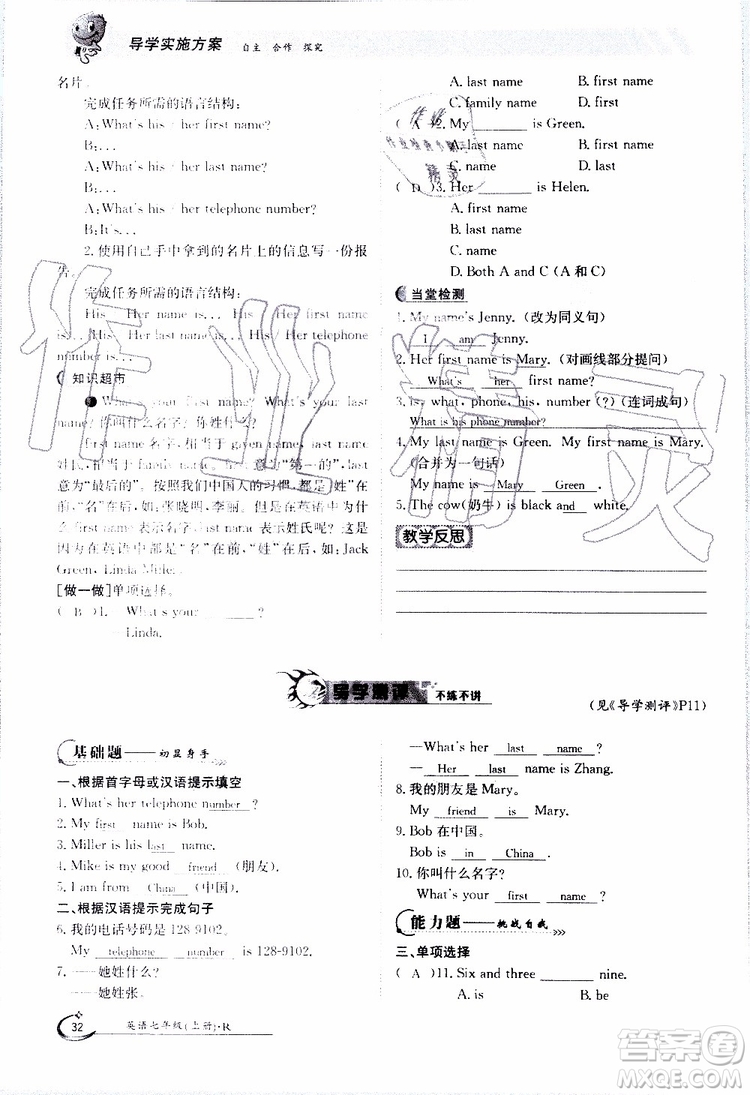 导学实施方案 自主 合作 探究
名片。
完成任务所需的语言结构：
A：What's his / her first name?
B：...
A：What's his / her last name?
B：...
A：What's his / her telephone number?
B：It's...
2. 使用自己手中拿到的名片上的信息写一份报
告。
完成任务所需的语言结构：
His / Her name is... His / Her first name
is... His / Her last name is... His / Her telephone
number is...
知识超市
● What's your first name? What's your last
name? 你叫什么名字？你姓什么？
意为“最后的”。按照我们中国人的习惯，都是“姓”在
前，“名”在后，如：张晓明，李丽。而在英语中，
first name 表示名字，last name 表示姓氏呢？这是
因为在英语中都是“名”在前，“姓”在后，如：Jack
Green, Linda Miller。
[做一做]单项选择。
( B )1. —What's your ______ ______?
—Linda.
A. last name B. first name
C. family name D. first
( A )2. My ______ is Green.
A. last name B. first name
C. name D. last
( D )3. Her ______ is Helen.
A. first name
B. last name
C. name
D. Both A and C(A 和 C)
当堂检测
1. My name's Jenny. (改为同义句)
I am Jenny.
2. Her first name is Mary. (对画线部分提问)
What's her first name?
3. is, what, phone, his, number (?) (连词成句)
What is his phone number?
4. My last name is Green. My first name is Mary.
(合并为一句话)
My name is Mary Green .
5. The cow(奶牛) is black and white.
教学反思
导学测评 不练不讲
(见《导学测评》P11)
基础题——初显身手
一、根据首字母或汉语提示填空
1. What's her telephone number ?
2. My first name is Bob.
3. Miller is his last name.
4. Mike is my good friend (朋友).
5. I am from China (中国).
二、根据汉语提示完成句子
6. 我的电话号码是 128-9102.
My telephone number is 128-9102.
7. ——她姓什么？
——她姓张。
—What's her last name ?
— Her last name is Zhang.
8. 我的朋友是 Mary。
My friend is Mary.
9. Bob 在中国。
Bob is in China .
10. 你叫什么名字？
What's your first name ?
能力题——挑战自我
三、单项选择
( A )11. Six and three ______ nine.
A. is B. be
32 英语七年级(上册)·R
作业精灵
答案圈
MXQE.COM